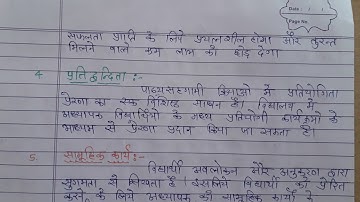 Date : / /
Page No.
सफलता प्राप्ति के लिये प्रयत्नशील होगा और तुरन्त
मिलने वाले कम लाभ को छोड़ देगा
4. प्रतिद्वन्दिता :-
पाठ्यसहगामी क्रियाओं में प्रतियोगिता
प्रेरणा का एक विशिष्ट साधन है। विद्यालय में
अध्यापक विद्यार्थियों के मध्य प्रतियोगी कार्यक्रमों के
माध्यम से प्रेरणा प्रदान किया जा सकता है।
5. सामूहिक कार्य :-
विद्यार्थी अवलोकन और अनुकरण द्वारा
सुगमता से सिखता है। इसलिये विद्यार्थी को प्रेरित
करने के लिये अध्यापक को सामूहिक कार्यों के